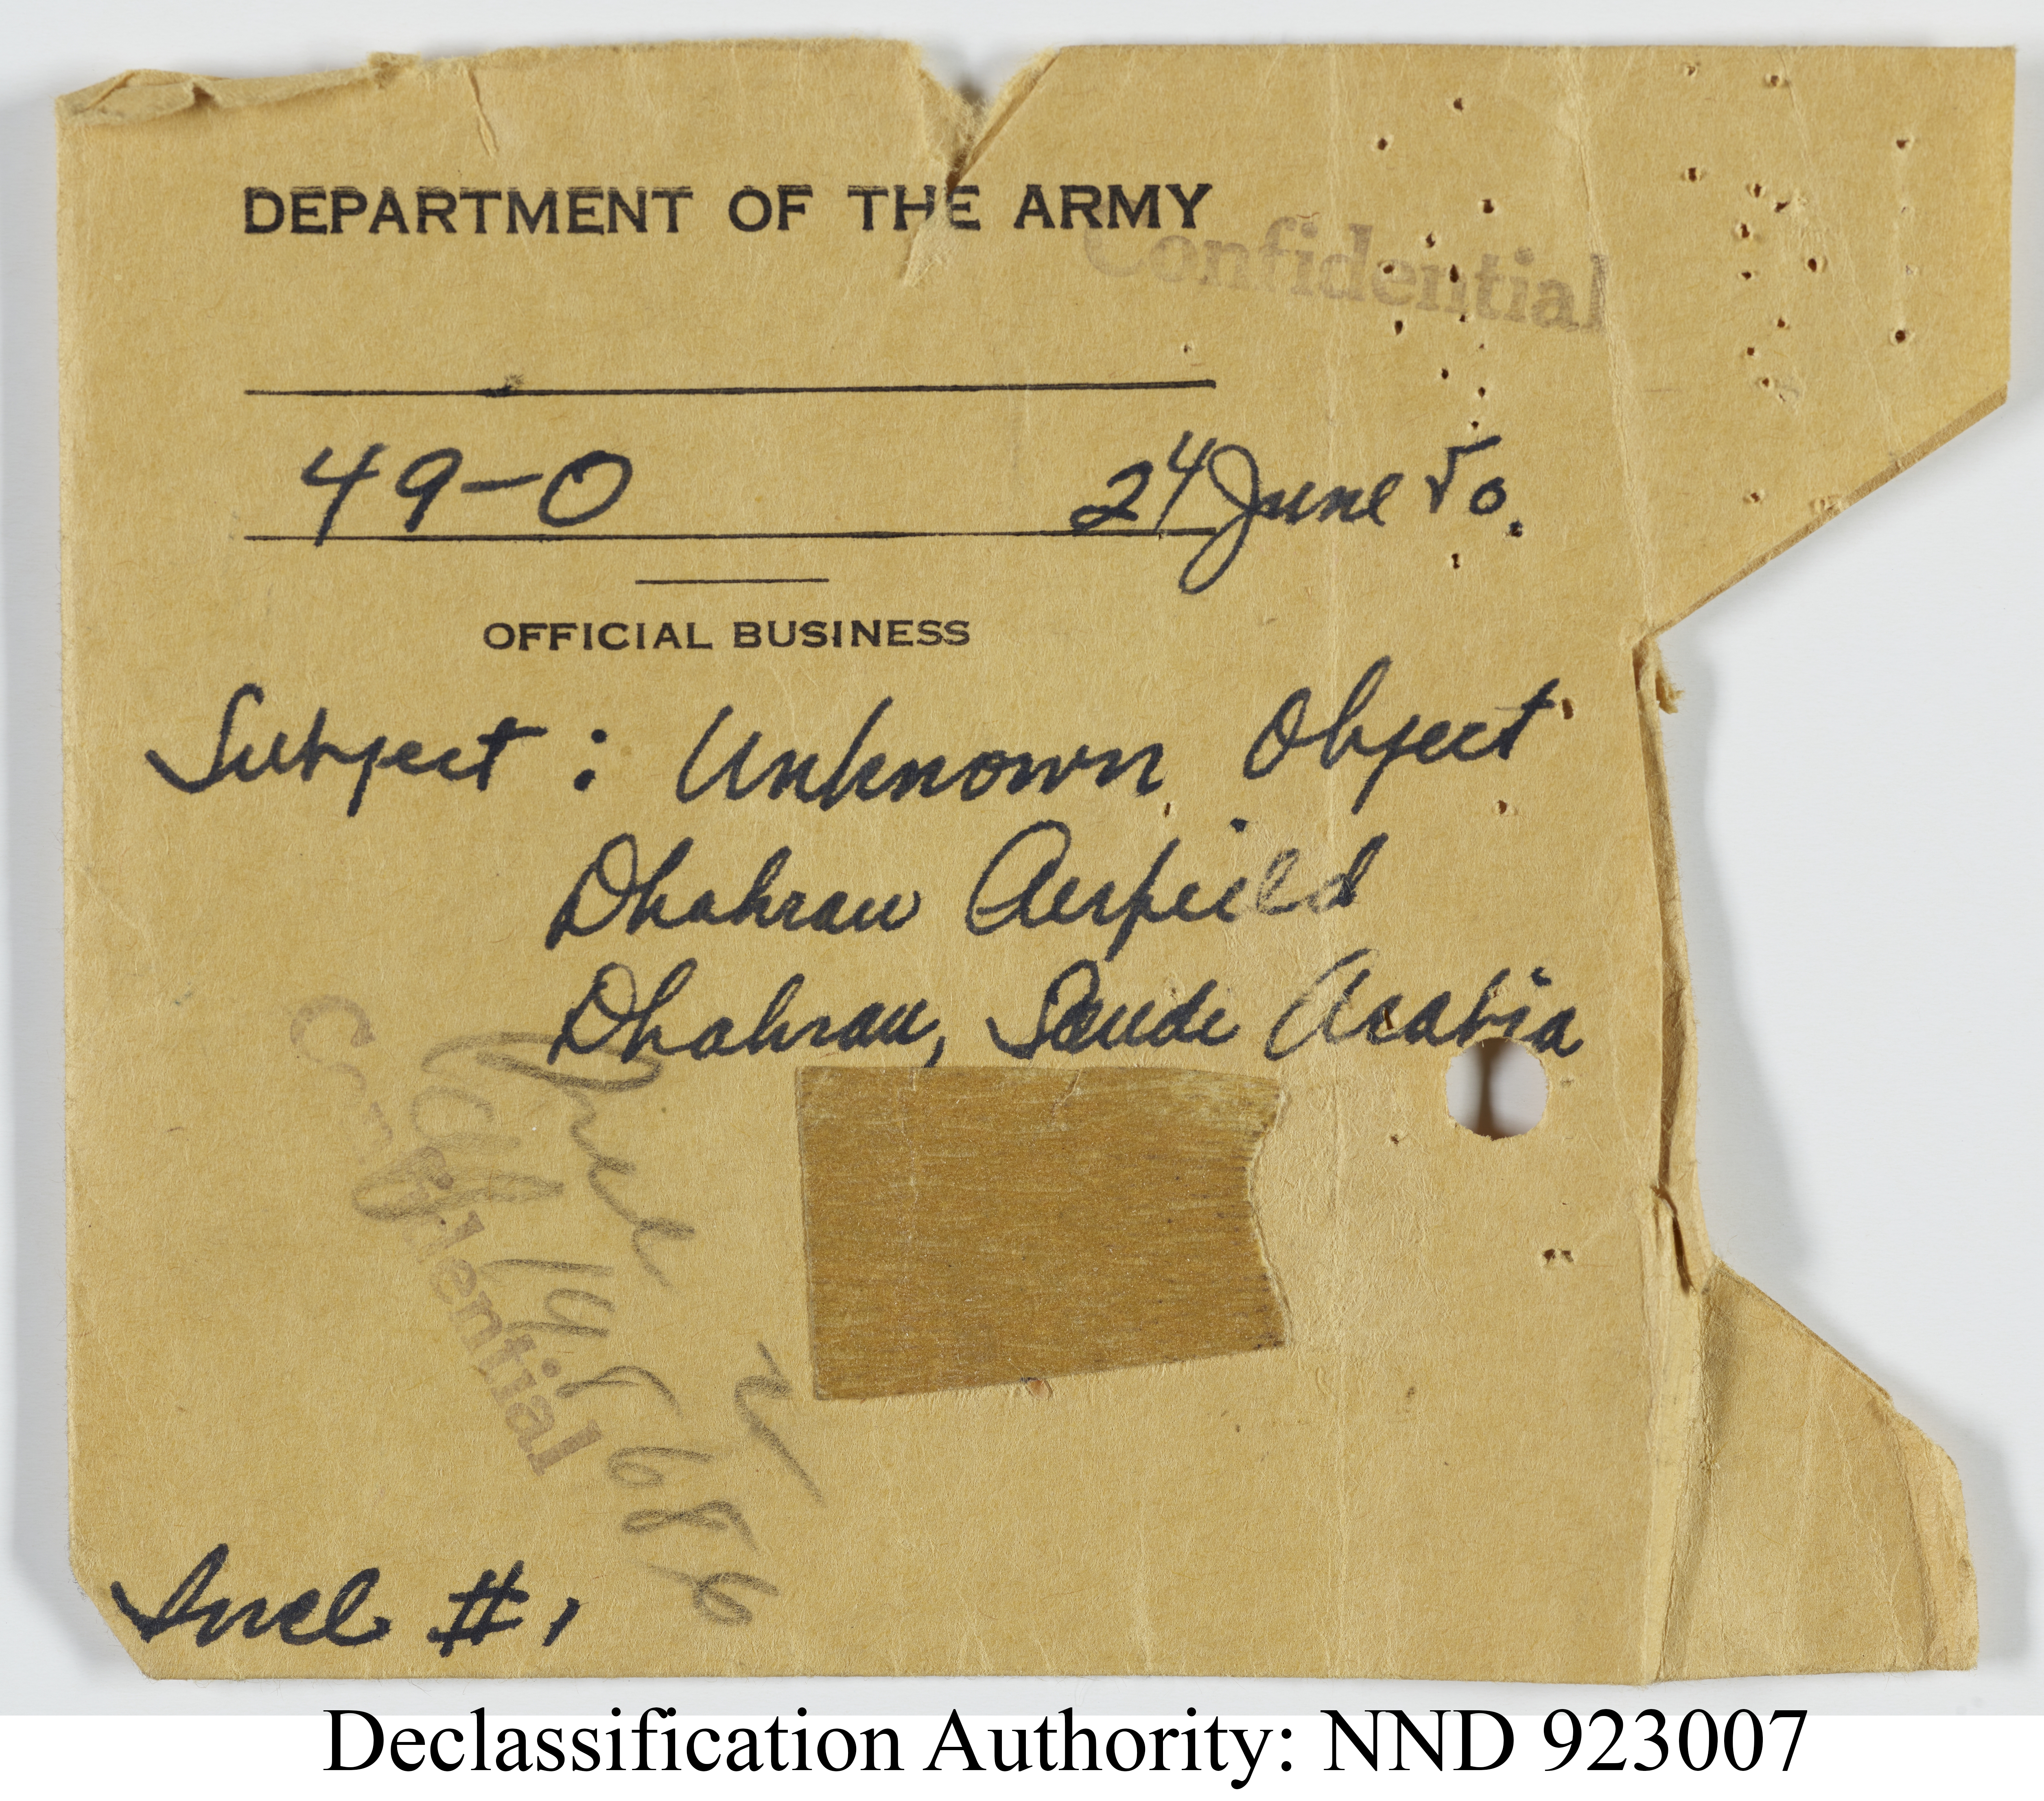 DEPARTMENT OF THE ARMY
Confidential
49-0 24 June 50.
OFFICIAL BUSINESS
Subject : Unknown Object
Dhahran Airfield
Dhahran, Saudi Arabia
Confidential
Incl
Incl #1
Declassification Authority: NND 923007